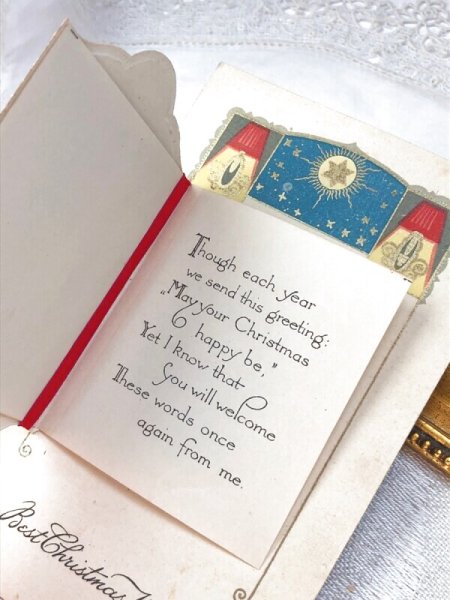 Though each year
we send this greeting:
„May your Christmas
happy be,"
Yet I know that
you will welcome
These words once
again from me.
Best Christmas